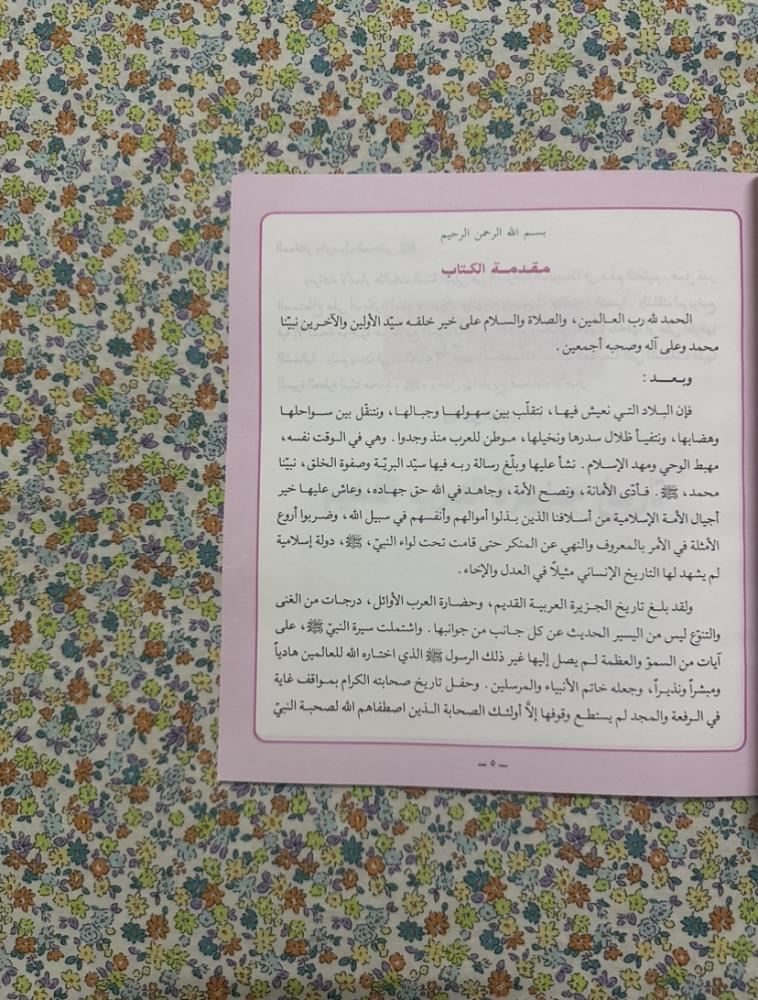 بسم الله الرحمن الرحيم
مقدمة الكتاب
الحمد لله رب العالمين، والصلاة والسلام على خير خلقه سيّد الأولين والآخرين نبيّنا
محمد وعلى آله وصحبه أجمعين.
وبعد:
فإن البلاد التي نعيش فيها، نتقلّب بين سهولها وجبالها، ونتنقّل بين سواحلها
وهضابها، ونتفيأ ظلال سدرها ونخيلها، موطن للعرب منذ وجدوا. وهي في الوقت نفسه،
مهبط الوحي ومهد الإسلام. نشأ عليها وبلّغ رسالة ربه فيها سيّد البريّة وصفوة الخلق، نبيّنا
محمد، ﷺ. فأدّى الأمانة، ونصح الأمة، وجاهد في الله حق جهاده، وعاش عليها خير
أجيال الأمة الإسلامية من أسلافنا الذين بذلوا أموالهم وأنفسهم في سبيل الله، وضربوا أروع
الأمثلة في الأمر بالمعروف والنهي عن المنكر حتى قامت تحت لواء النبيّ، ﷺ، دولة إسلامية
لم يشهد لها التاريخ الإنساني مثيلاً في العدل والإخاء.
ولقد بلغ تاريخ الجزيرة العربية القديم، وحضارة العرب الأوائل، درجات من الغنى
والتنوّع ليس من اليسير الحديث عن كل جانب من جوانبها. واشتملت سيرة النبيّ ﷺ، على
آيات من السموّ والعظمة لم يصل إليها غير ذلك الرسول ﷺ الذي اختاره الله للعالمين هادياً
ومبشراً ونذيراً، وجعله خاتم الأنبياء والمرسلين. وحفل تاريخ صحابته الكرام بمواقف غاية
في الرفعة والمجد لم يستطع وقوفها إلاَّ أولئك الصحابة الذين اصطفاهم الله لصحبة النبيّ
– ٥ –